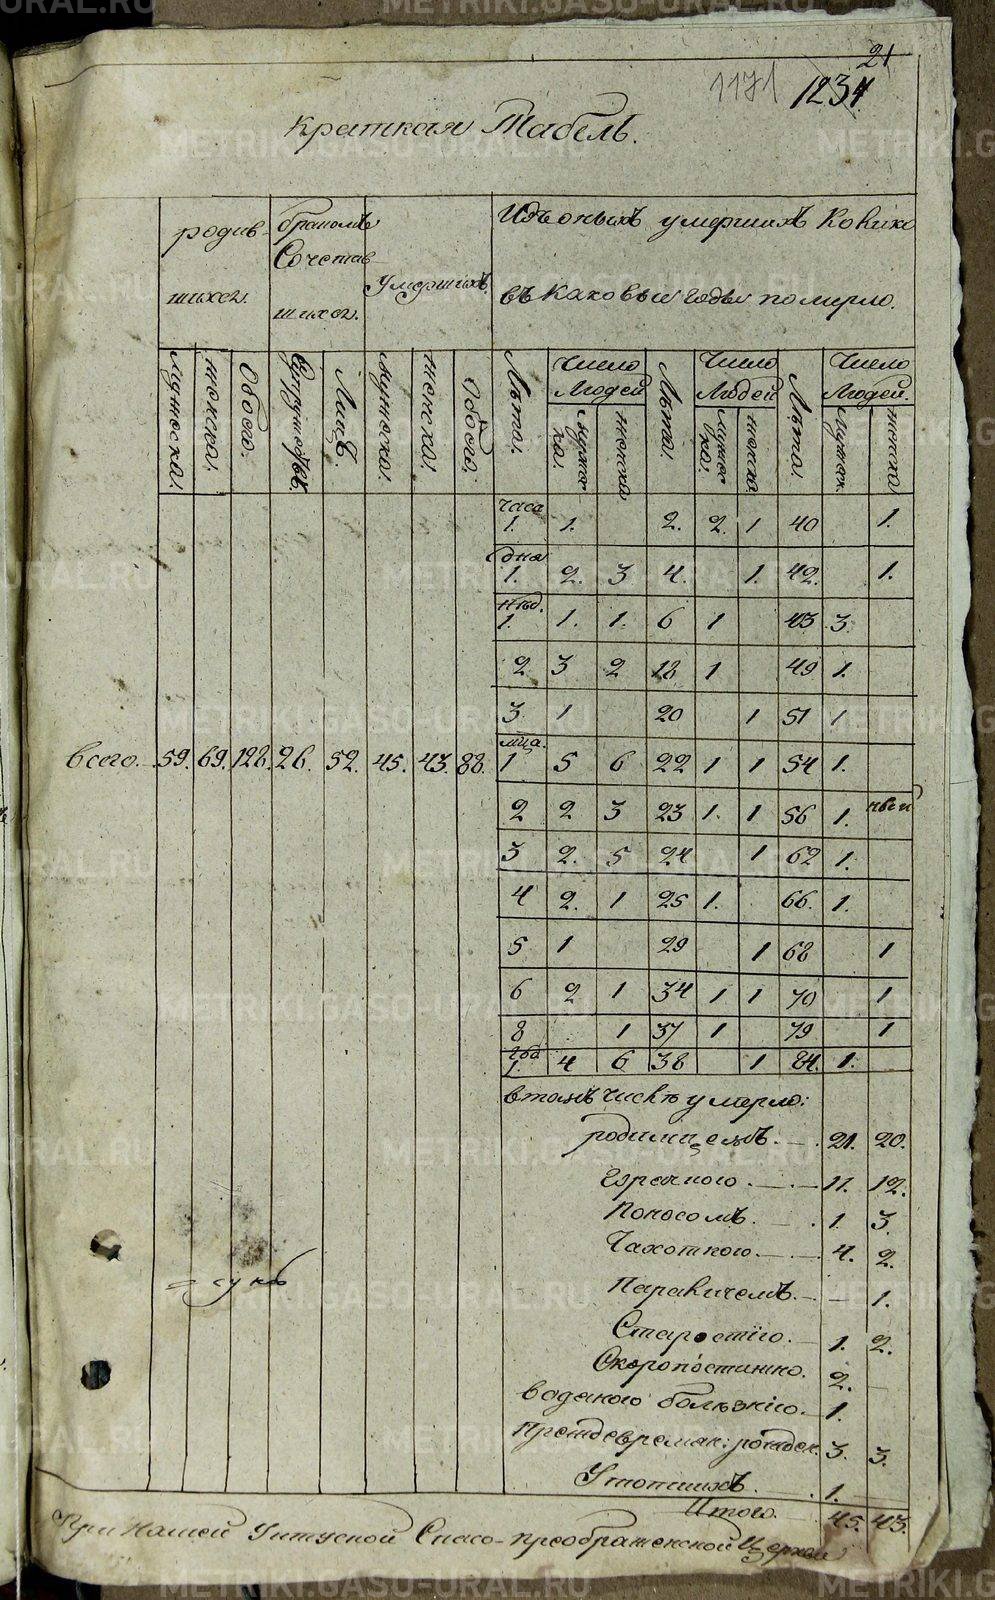 21
1171 1234
Краткая Табель.
родив- бракомъ Изъ оныхъ умершихъ колико
Сочетав- умершихъ.
шихся. шихся. въ каковыи годы померло.
мужеска. женска. обоего. супружествъ. Лицъ. мужеска. женска. обоего. Лѣта. Число Людей Лѣта. Число Людей Лѣта. Число Людей.
мужеска. женска мужеска. женска мужеск. женска
часа 1. 1. 2. 2. 1 40 1.
дня 1. 2. 3 4. 1. 42. 1.
нед. 1. 1. 1. 6 1 43 3.
2 3 2 18 1 49 1.
3 1 20 1 51 1
всего. 59. 69. 128. 26. 52. 45. 43. 88. мца. 1 5 6 22 1 1 54 1.
2 2 3 23 1. 1 56 1.
3 2. 5 24 1 62 1.
4 2. 1 25 1. 66. 1.
5 1 29 1 68 1
6 2 1 34 1 1 70 1
8 1 37 1 79 1
года 1. 4 6 38 1 84. 1.
втомъ числѣ умерло:
родимцемъ. 21. 20.
горячкою. 11. 12.
поносомъ. 1. 3.
Чахоткою. 4. 2.
Параличемъ. 1.
Старостію. 1. 2.
Скоропостижно. 2.
водяною болѣзнію. 1.
Преждевремен: рожден. 3. 3.
Утопшихъ. 1.
Итого. 45. 43.
При Нашей Уткуской Спасо-преображенской Церкви
METRIKI.GASU-URAL.RU